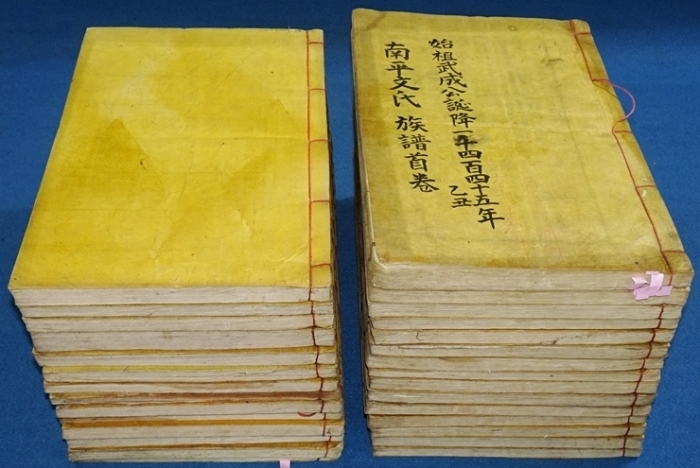 始祖武成公誕降一千四百四十五年
乙丑
南平文氏 族譜首卷